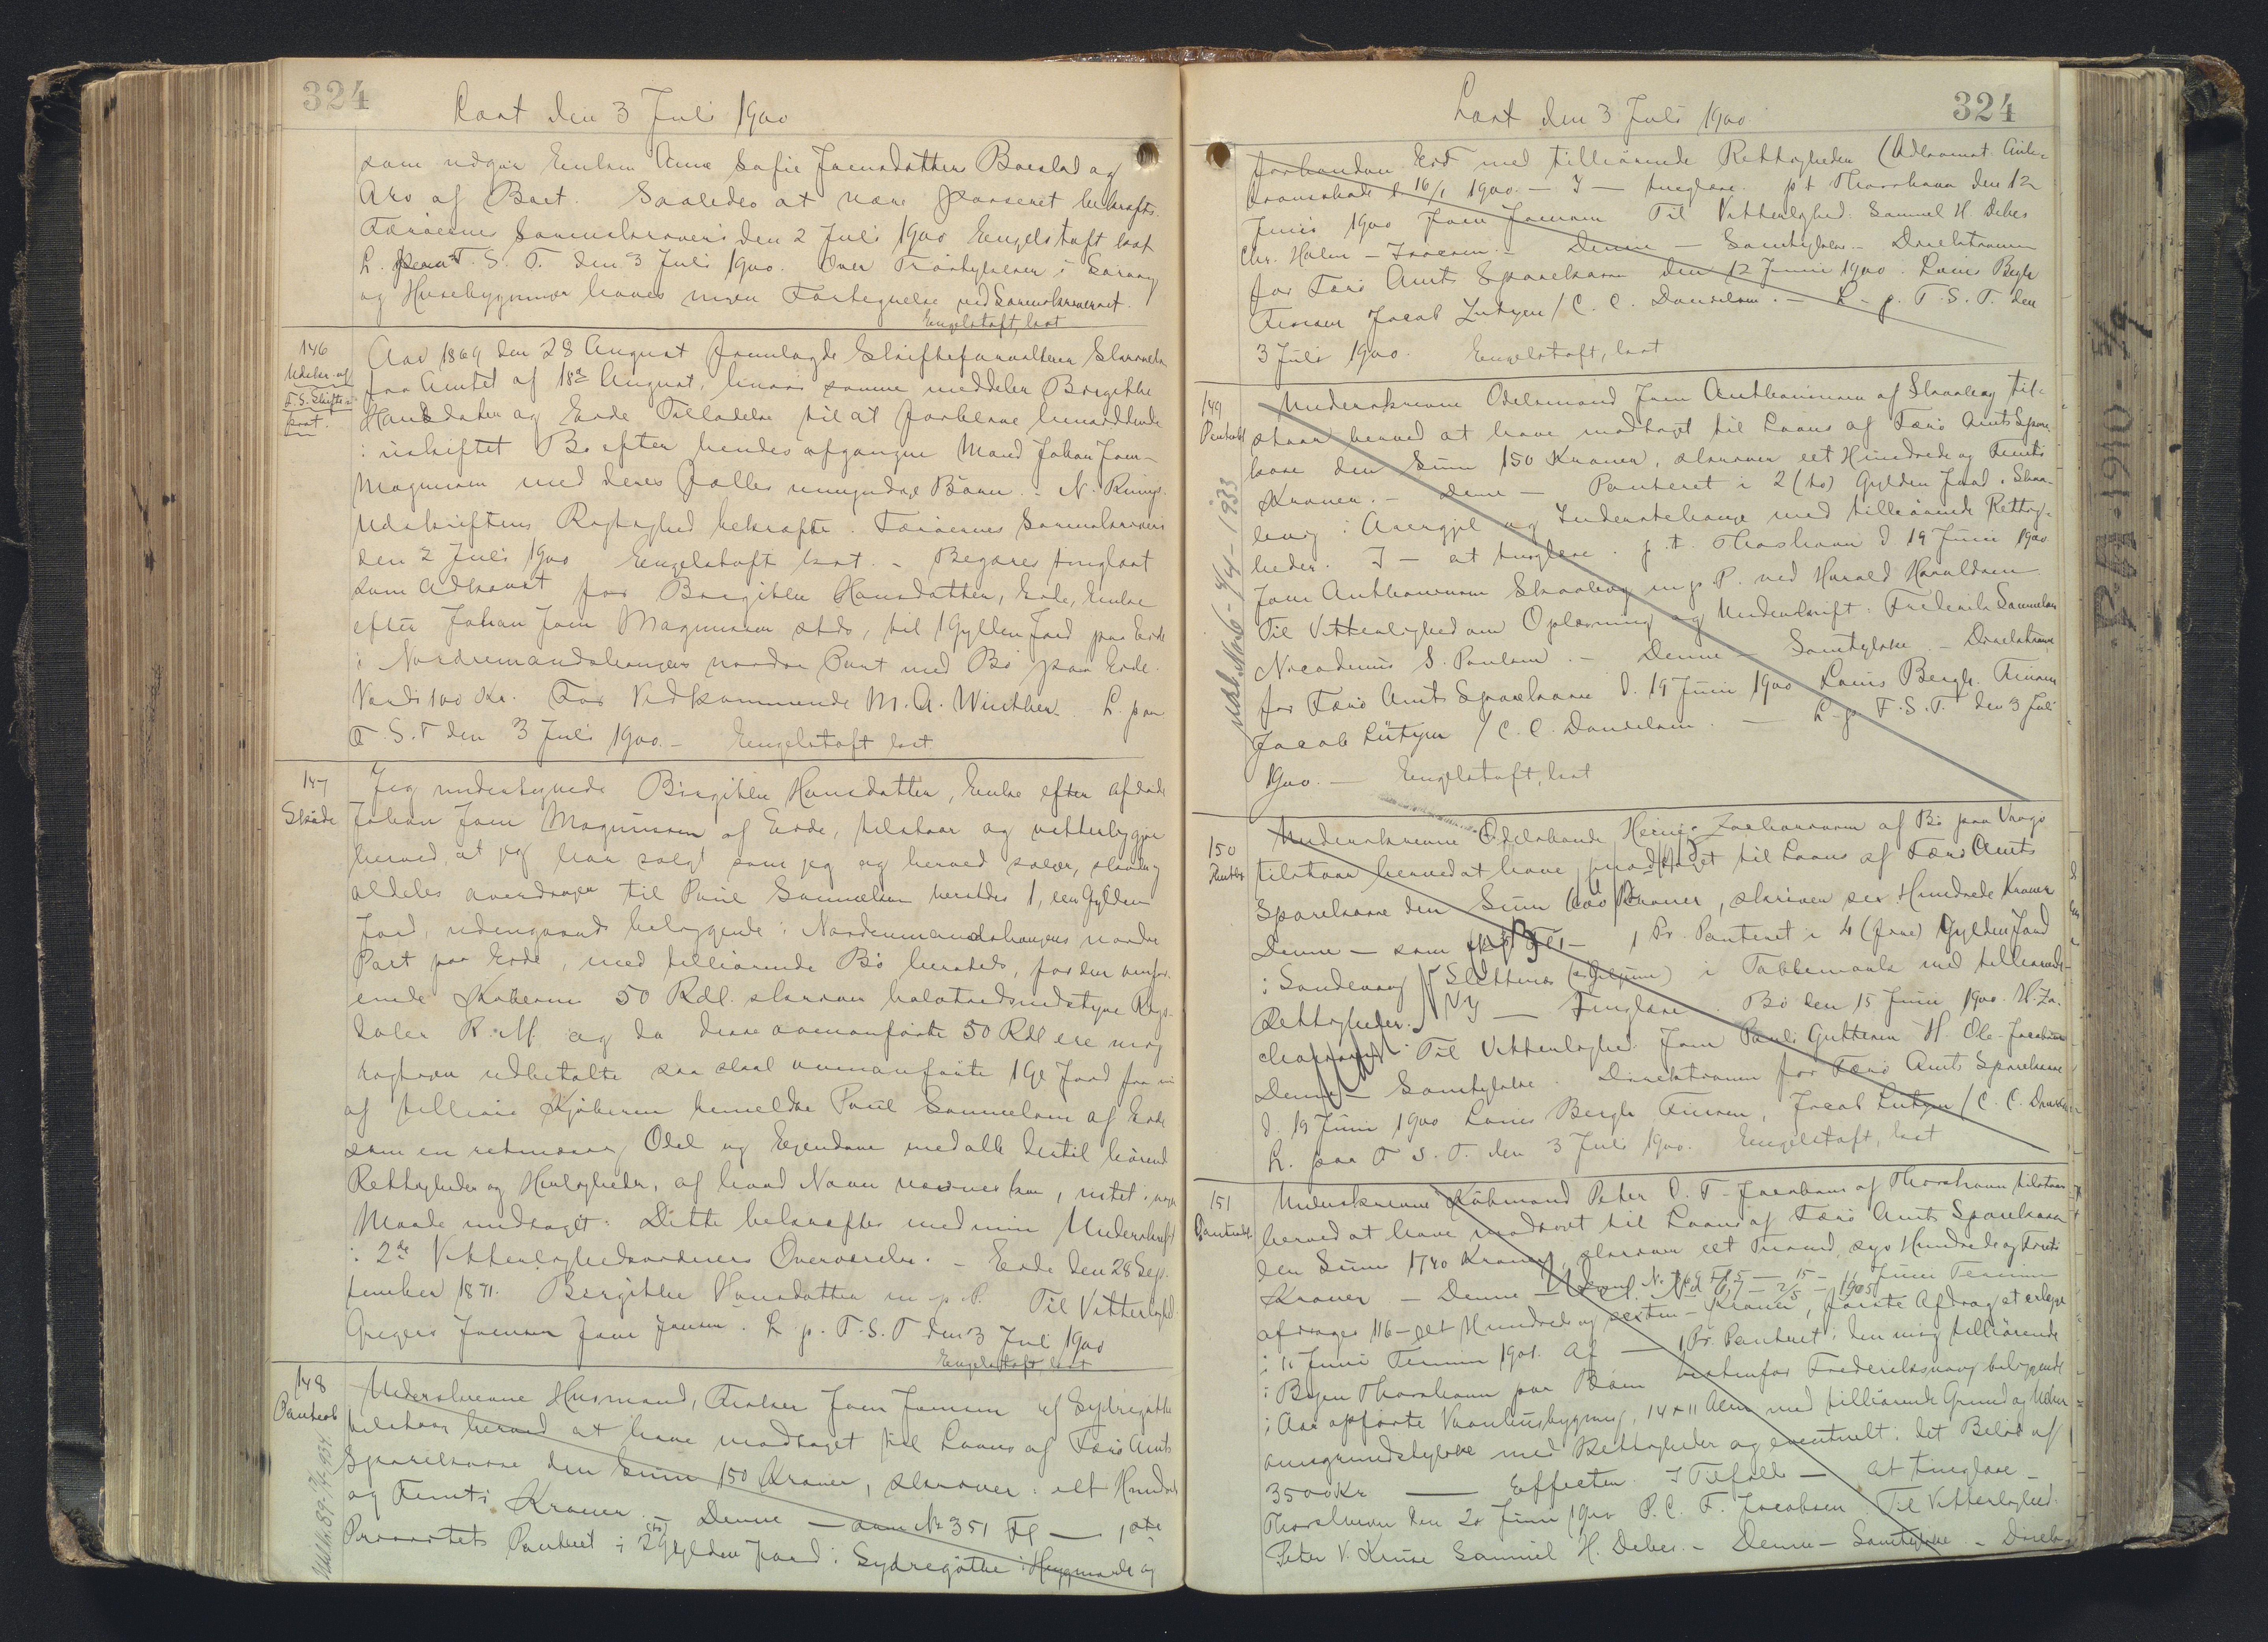 324
Læst den 3 Juli 1900
som udgør Enken Anna Sofie Joensdatters Boeslod og
Arv af Boet. Saaledes at være passeret bekræftes.
Færøernes Sorenskriveri den 2 Juli 1900 Engelstoft kst
L. paa T. S. T. den 3 Juli 1900. Over
og Husebygninger haves ingen Fortegnelse ved Sorenskriveriet.
Engelstoft, kst
146
Udskr. af
F. S. Skifte-
prot.
Aar 1869 den 28 August fremlagde Skifteforvalteren Skrivelse
fra Amtet af 18de August, hvori samme meddeler Birgithe
Hansdatter af Eide Tilladelse til at forblive hensiddende
i uskiftet Bo efter hendes afgangne Mand Johan Joen
Magnussen med deres fælles umyndige Børn. -
Udskriftens Rigtighed bekræftes. Færøernes Sorenskriveri
den 2 Juli 1900 Engelstoft kst. - Begæres tinglæst
som Adkomst for Birgithe Hansdatter, Eide, Enke
efter Johan Joen Magnussen stds, til 1 Gylden Jord paa Eide
i Nordremandshaugens nordre Part med Bø paa Eide.
Værdi 100 Kr. For Vedkommende M. A. Winther. L. paa
F. S. T den 3 Juli 1900. - Engelstoft kst
147
Skøde
Jeg undertegnede Birgithe Hansdatter, Enke efter afdøde
Johan Joen Magnussen af Eide, tilstaar og vitterliggør
herved, at jeg har solgt som jeg og herved sælger, skøder og
aldeles overdrager til Poul Samuelsen hersteds 1, een Gylden
Jord, udengaards beliggende i Nordremandshaugens nordre
Part paa Eide, med tilliørende Bø hersteds, for den omfor-
enede Købesum 50 Rdl. skriver halvtredsindstyve Rigs-
daler R. M. og da disse ovenanførte 50 Rdl ere mig
rigtigen udbetalte saa skal ovenanførte 1 Gl Jord fra nu
af tilhøre Kjøberen bemeldte Poul Samuelsen af Eide
som en retmæssig Odel og Ejendom med alle dertil hørende
Rettigheder og Herligheder, af hvad Navn nævnes kan, intet i nogen
Maade undtaget. Dette bekræftes med min Underskrift
i 2de Vitterlighedsvidners Overværelse. - Eide den 28 Sep-
tember 1871. Birgithe Hansdatter m. p. P. Til Vitterlighed
Gregers Joensen Joen Jensen. L. p. T. S. T den 3 Juli 1900
Engelstoft kst
148
Panteob
Underskrevne Husmand, Fisker Joen Joensen af Sydregøthe
tilstaar herved at have modtaget til Laans af Færø Amts
Sparekasse den Sum 150 Kroner, skriver: eet Hundrede
og Femti Kroner. - Denne - som No 351 Fl - 1ste
Prioritets Panteret i 2 (to) Gylden Jord i Sydregøthe i og
324
Læst den 3 Juli 1900
forhandus Eid med tilliørende Rettigheder (Adkomst: Auk-
tionsskøde l. 16/1 1900. - I - tinglæse p t Thorshavn den 12
Juni 1900 Joen Joensen Til Vitterlighed: Samuel H. Debes
Chr. Holm - Isaksen. - Denne - Samtykke - Direktionen
for Færø Amts Sparekasse den 12 Juni 1900. Louis Bergh
Finsen Jacob Lützen / C. C. Danielsen. - L. p. T. S. T. den
3 Juli 1900. Engelstoft, kst
149
Panteobl
Underskrevne Odelsmand Joen Anthoniussen af Skaalevig til-
staar herved at have modtaget til Laans af Færø Amts Spare-
kasse den Sum 150 Kroner, skriver eet Hundrede og Femti
Kroner. - Denne - Panteret i 2 (to) Gylden Jord i Skaa-
levig: og med tilliørende Rettig-
heder. I - at tinglæse. p. t. Thorshavn d 19 Juni 1900
Joen Anthoniussen Skaalevig m. p. P. ved Harald Haraldsen
Til Vitterlighed om Oplæsning og Underskrift: Frederik Samuelsen
Nicodemus S. Poulsen. - Denne - Samtykke - Direktionen
for Færø Amts Sparekasse d. 19 Juni 1900 Louis Bergh. Finsen
Jacob Lützen / C. C. Danielsen. - L. p. T. S. T. den 3 Juli
1900. - Engelstoft, kst
150
Panteob
Underskrevne Odelsbonde Heine Zachariasen af Bø paa Vaagø
tilstaar herved at have modtaget til Laans af Færø Amts
Sparekasse den Sum 600 Kroner, skriver sex Hundrede Kroner
Denne - som - 1 Pr. Panteret i 4 (fire) Gylden Jord
i Sandevaag i med tilliørende
Rettigheder. - tinglæse. Bø den 15 Juni 1900. H. Za-
chariasen. Til Vitterlighed Joen Pauli Guttesen H Ole Jacobsen
Denne - Samtykke. Direktionen for Færø Amts Sparekasse
d. 19 Juni 1900 Louis Bergh Finsen, Jacob Lützen / C. C. Danielsen
L. paa T. S. T. den 3 Juli 1900. Engelstoft, kst
151
Panteobl.
Underskrevne Købmand Peter C. F. Jacobsen af Thorshavn tilstaar
herved at have modtaget til Laans af Færø Amts Sparekasse
den Sum 1740 Kroner, skriver eet Tusind, syv Hundrede og Firti
Kroner - Denne - 11 Juni Termin
afdrages 116 - eet Hundrede og sexten - Kroner, første Afdrag at erlægge
i 11 Juni Termin 1901. Af - 1 Pr. Panteret i den mig tilliørende
i Byen Thorshavn paa Bøen vestenfor Frederiksvaag beliggende
i Aar opførte Vaaningsbygning, 14 x 11 Alen med tilliørende Grund og
med Rettigheder og eventuelt i det Beløb af
3500 Kr - Effecten I Tilfælde - at tinglæse -
Thorshavn den 20 Juni 1900 P. C. F. Jacobsen Til Vitterlighed.
Peter V. Kruse Samuel H. Debes. - Denne - Samtykke - Direkt